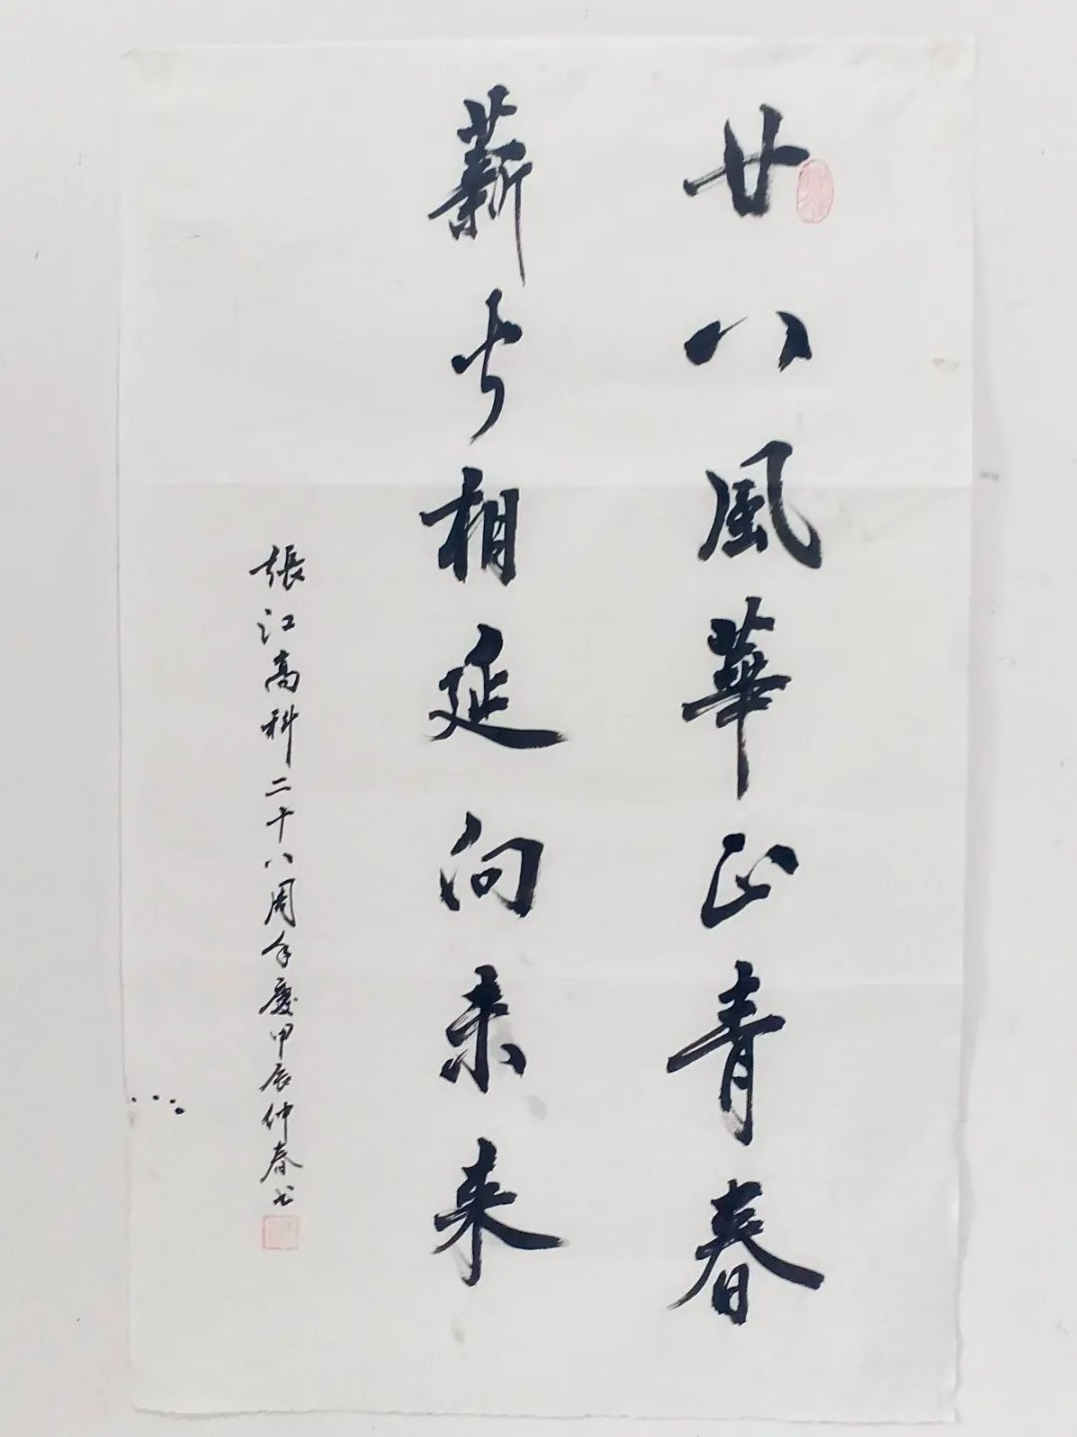 廿八風華正青春
薪火相延向未来
張江高科二十八周年慶甲辰仲春书